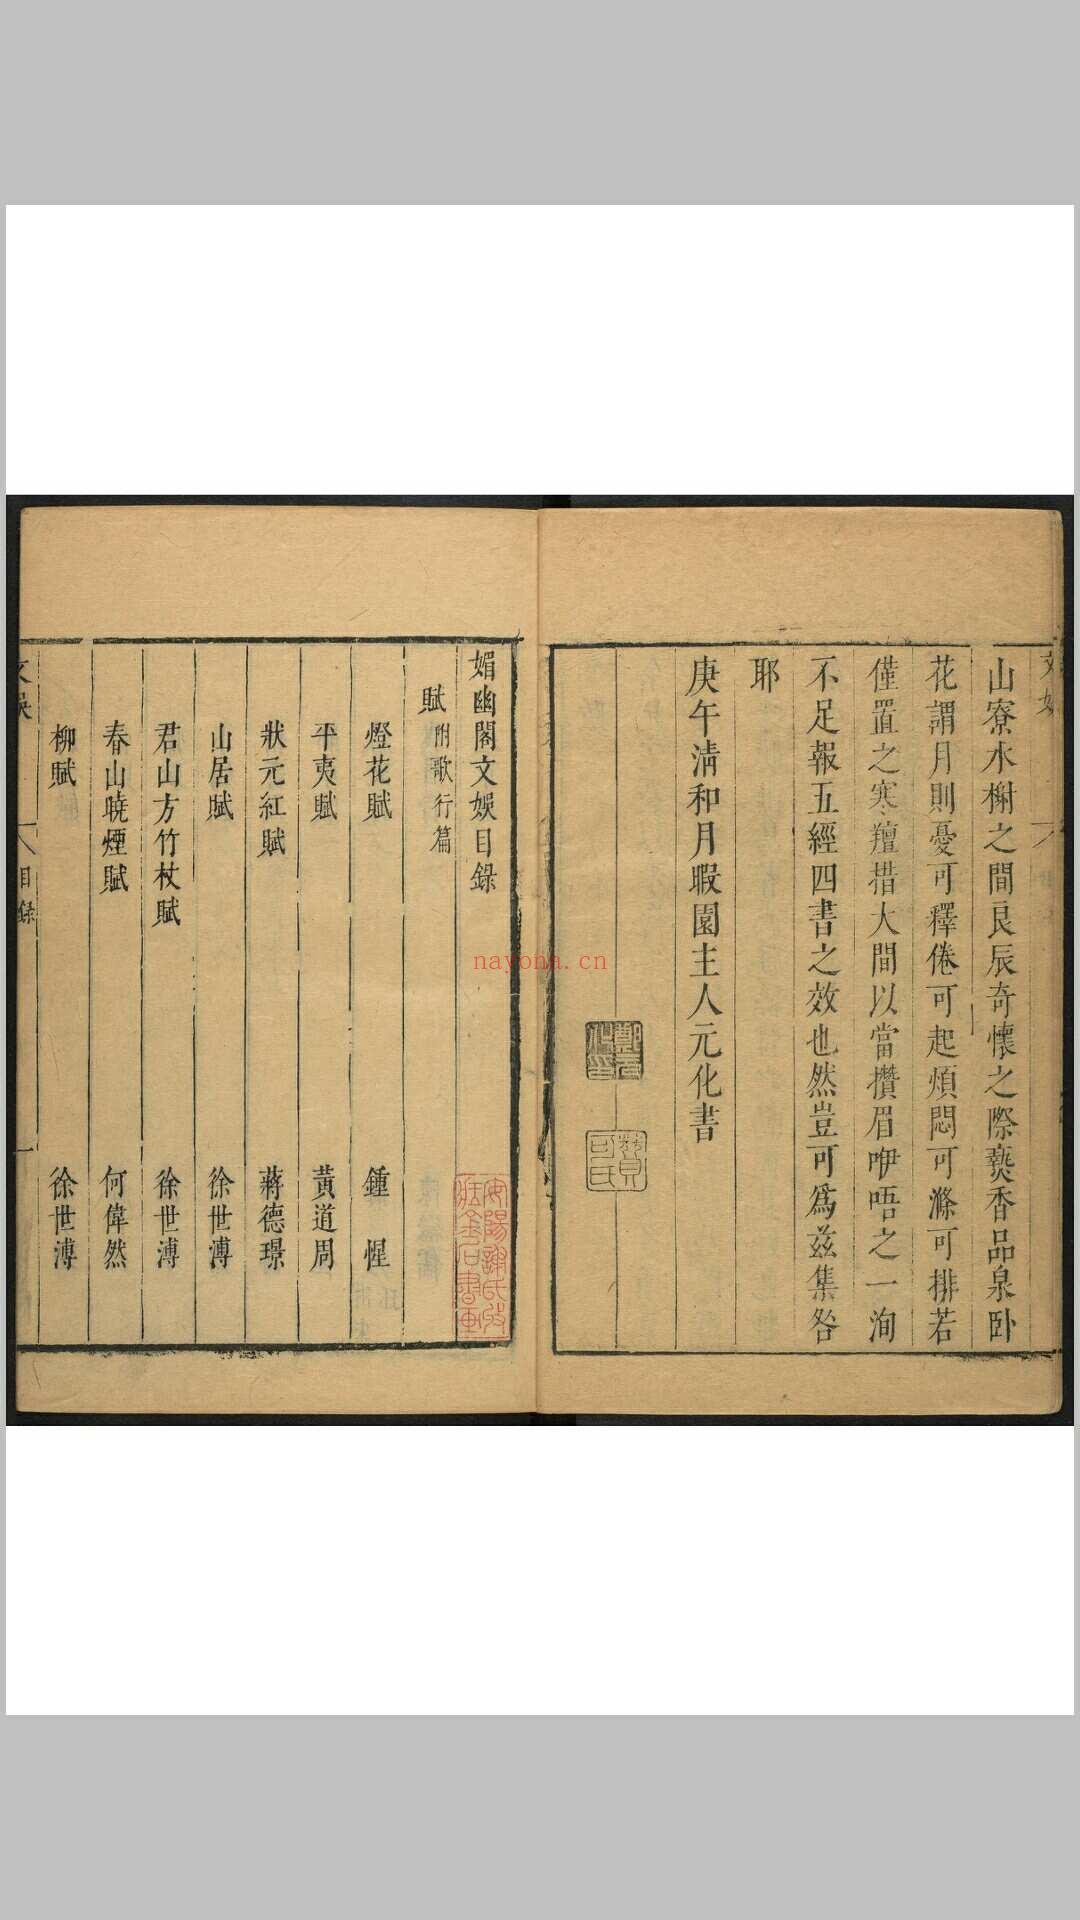 山寮水榭之間良辰奇懷之際爇香品泉卧
花謂月則憂可釋倦可起煩悶可滌可排若
僅置之寒羶措大間以當攢眉咿唔之一洵
不足報五經四書之效也然豈可為茲集咎
耶
庚午清和月暇園主人元化書
鄭元化印
媚幽閣文娛目錄
賦 附歌行篇
燈花賦 鍾惺
平夷賦 黃道周
狀元紅賦 蔣德璟
山居賦 徐世溥
君山方竹杖賦 徐世溥
春山曉煙賦 何偉然
柳賦 徐世溥
文娛 目錄 一
nayona.cn